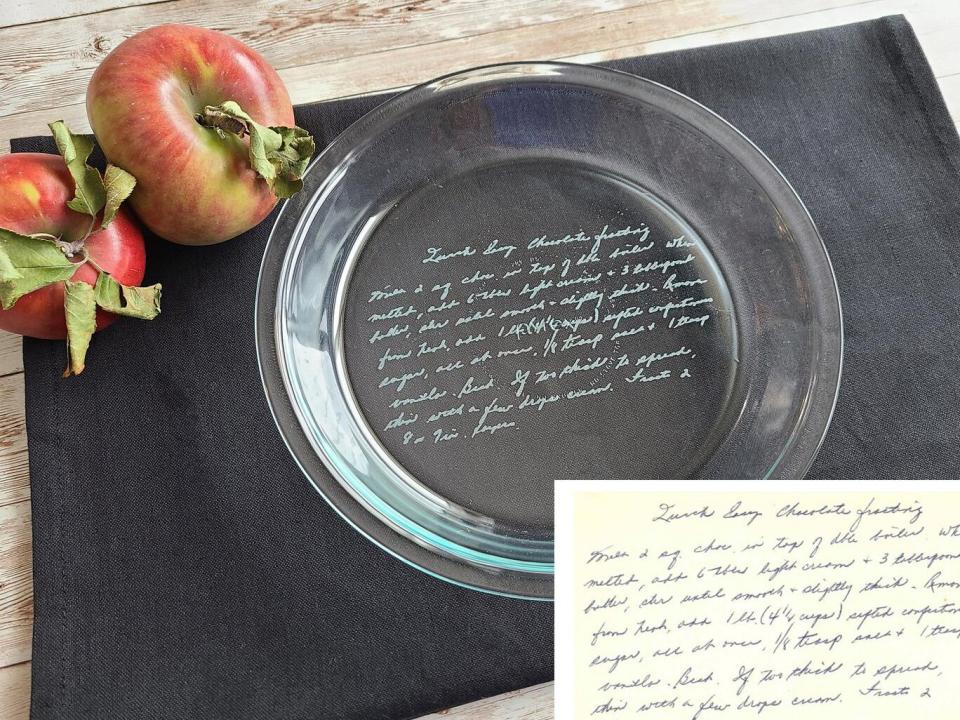 Quick Easy Chocolate frosting
2 sq. choc. in top of dble boiler. When
melted, add 6 tbls light cream + 3 tablespoons
butter, stir until smooth + slightly thick. Remove
from heat, add 1 lb. (4 1/2 cups) sifted confectioners
sugar, all at once, 1/8 teasp salt + 1 teasp
vanilla. Beat. If too thick to spread,
thin with a few drops cream. Frosts 2
8 or 9 in. layers.
Chocolate frosting
2 sq. choc. in top of dble boiler. Wh
melted, add 6 tbls light cream + 3 tablespoon
butter, stir until smooth + slightly thick. Remov
from heat, add 1 lb. (4 1/2 cups) sifted confection
sugar, all at once, 1/8 teasp salt + 1 teasp
vanilla. Beat. If too thick to spread,
thin with a few drops cream. Frosts 2